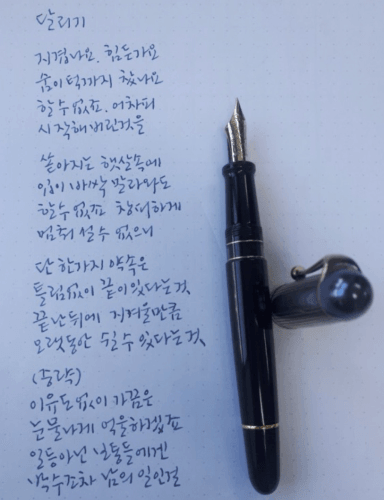 달리기
지겹나요. 힘든가요
숨이 턱까지 찼나요
할 수 없죠. 어차피
시작해 버린것을
쏟아지는 햇살속에
입이 바싹 말라와도
할 수 없죠 창피하게
멈춰 설 수 없으니
단 한가지 약속은
틀림없이 끝이 있다는 것
끝난 뒤에 지겨울만큼
오랫동안 쉴 수 있다는 것
(중략)
이유도 없이 가끔은
눈물나게 억울하겠죠
일등 아닌 보통들에겐
박수조차 남의 일인걸